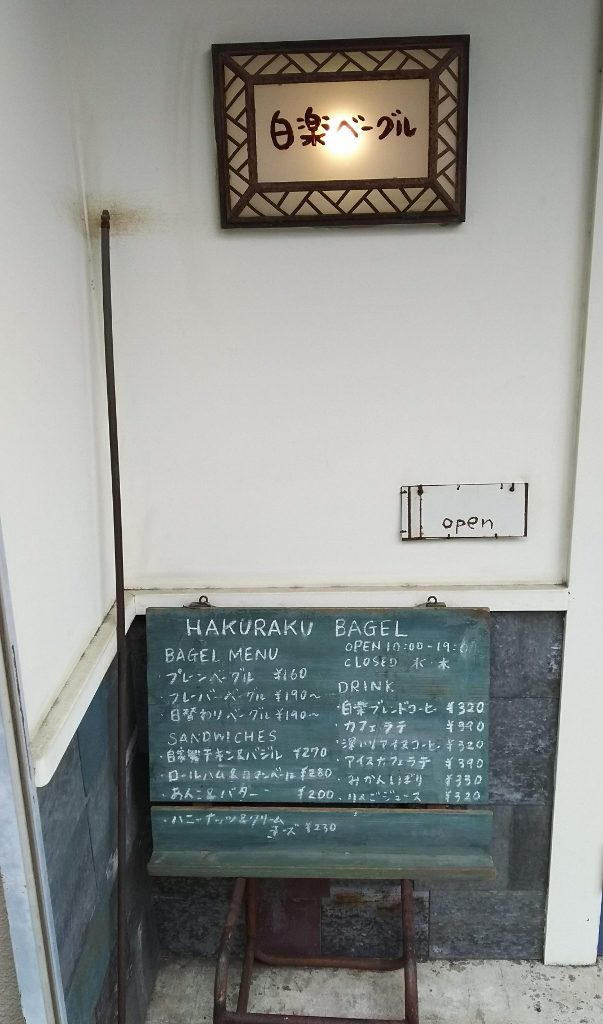 白楽ベーグル
open
HAKURAKU BAGEL
OPEN 10:00-19:00
CLOSED 水 木
BAGEL MENU
・プレーンベーグル ¥160
・フレーバーベーグル ¥190〜
・日替わりベーグル ¥190〜
SANDWICHES
・自家製チキン&バジル ¥270
・ロールハム&カマンベール ¥280
・あんこ&バター ¥200
・ハニーナッツ&クリーム
チーズ ¥230
DRINK
・白楽ブレンドコーヒー ¥320
・カフェラテ ¥390
・深いりアイスコーヒー ¥320
・アイスカフェラテ ¥390
・みかんしぼり ¥350
・りんごジュース ¥320